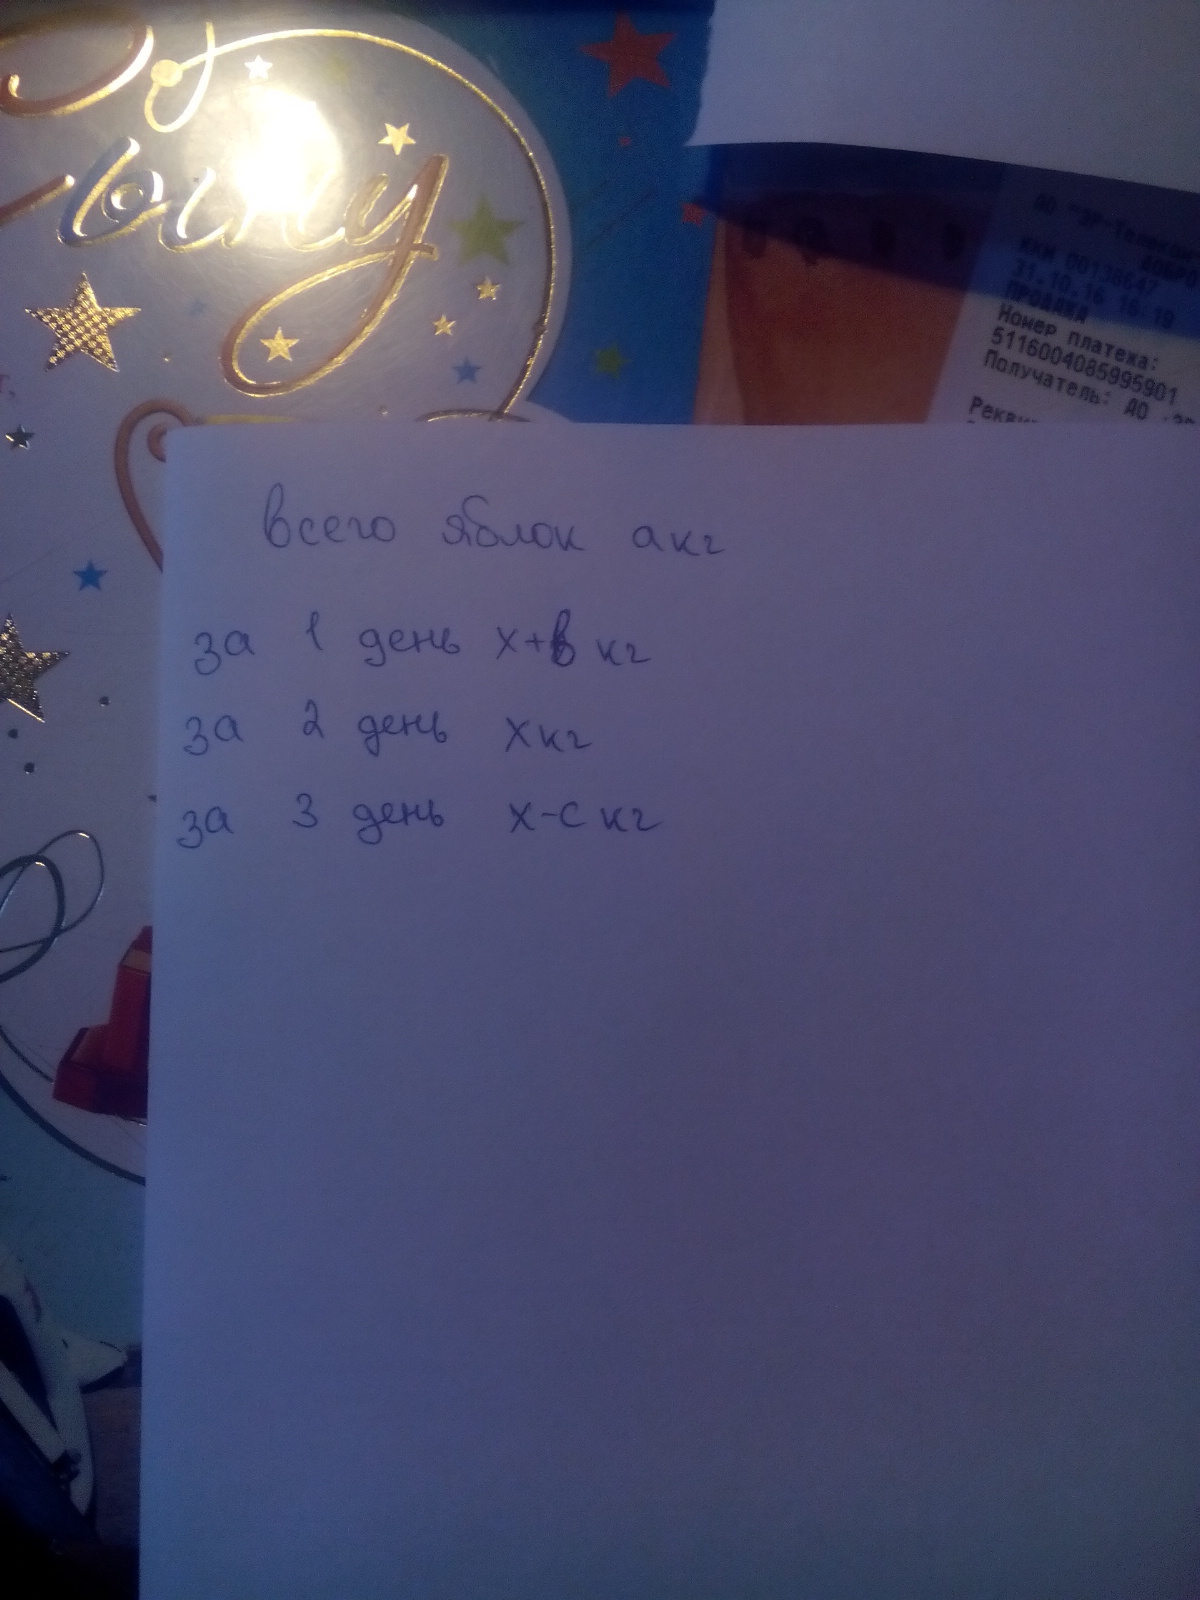 Сыну
АО "ЭР-Телеком
ККМ 00138647
31.10.16 16:19
ПРОДАЖА
Номер платежа:
5116004085995901
Получатель: АО
всего яблок а кг
за 1 день х+в кг
за 2 день х кг
за 3 день х-с кг